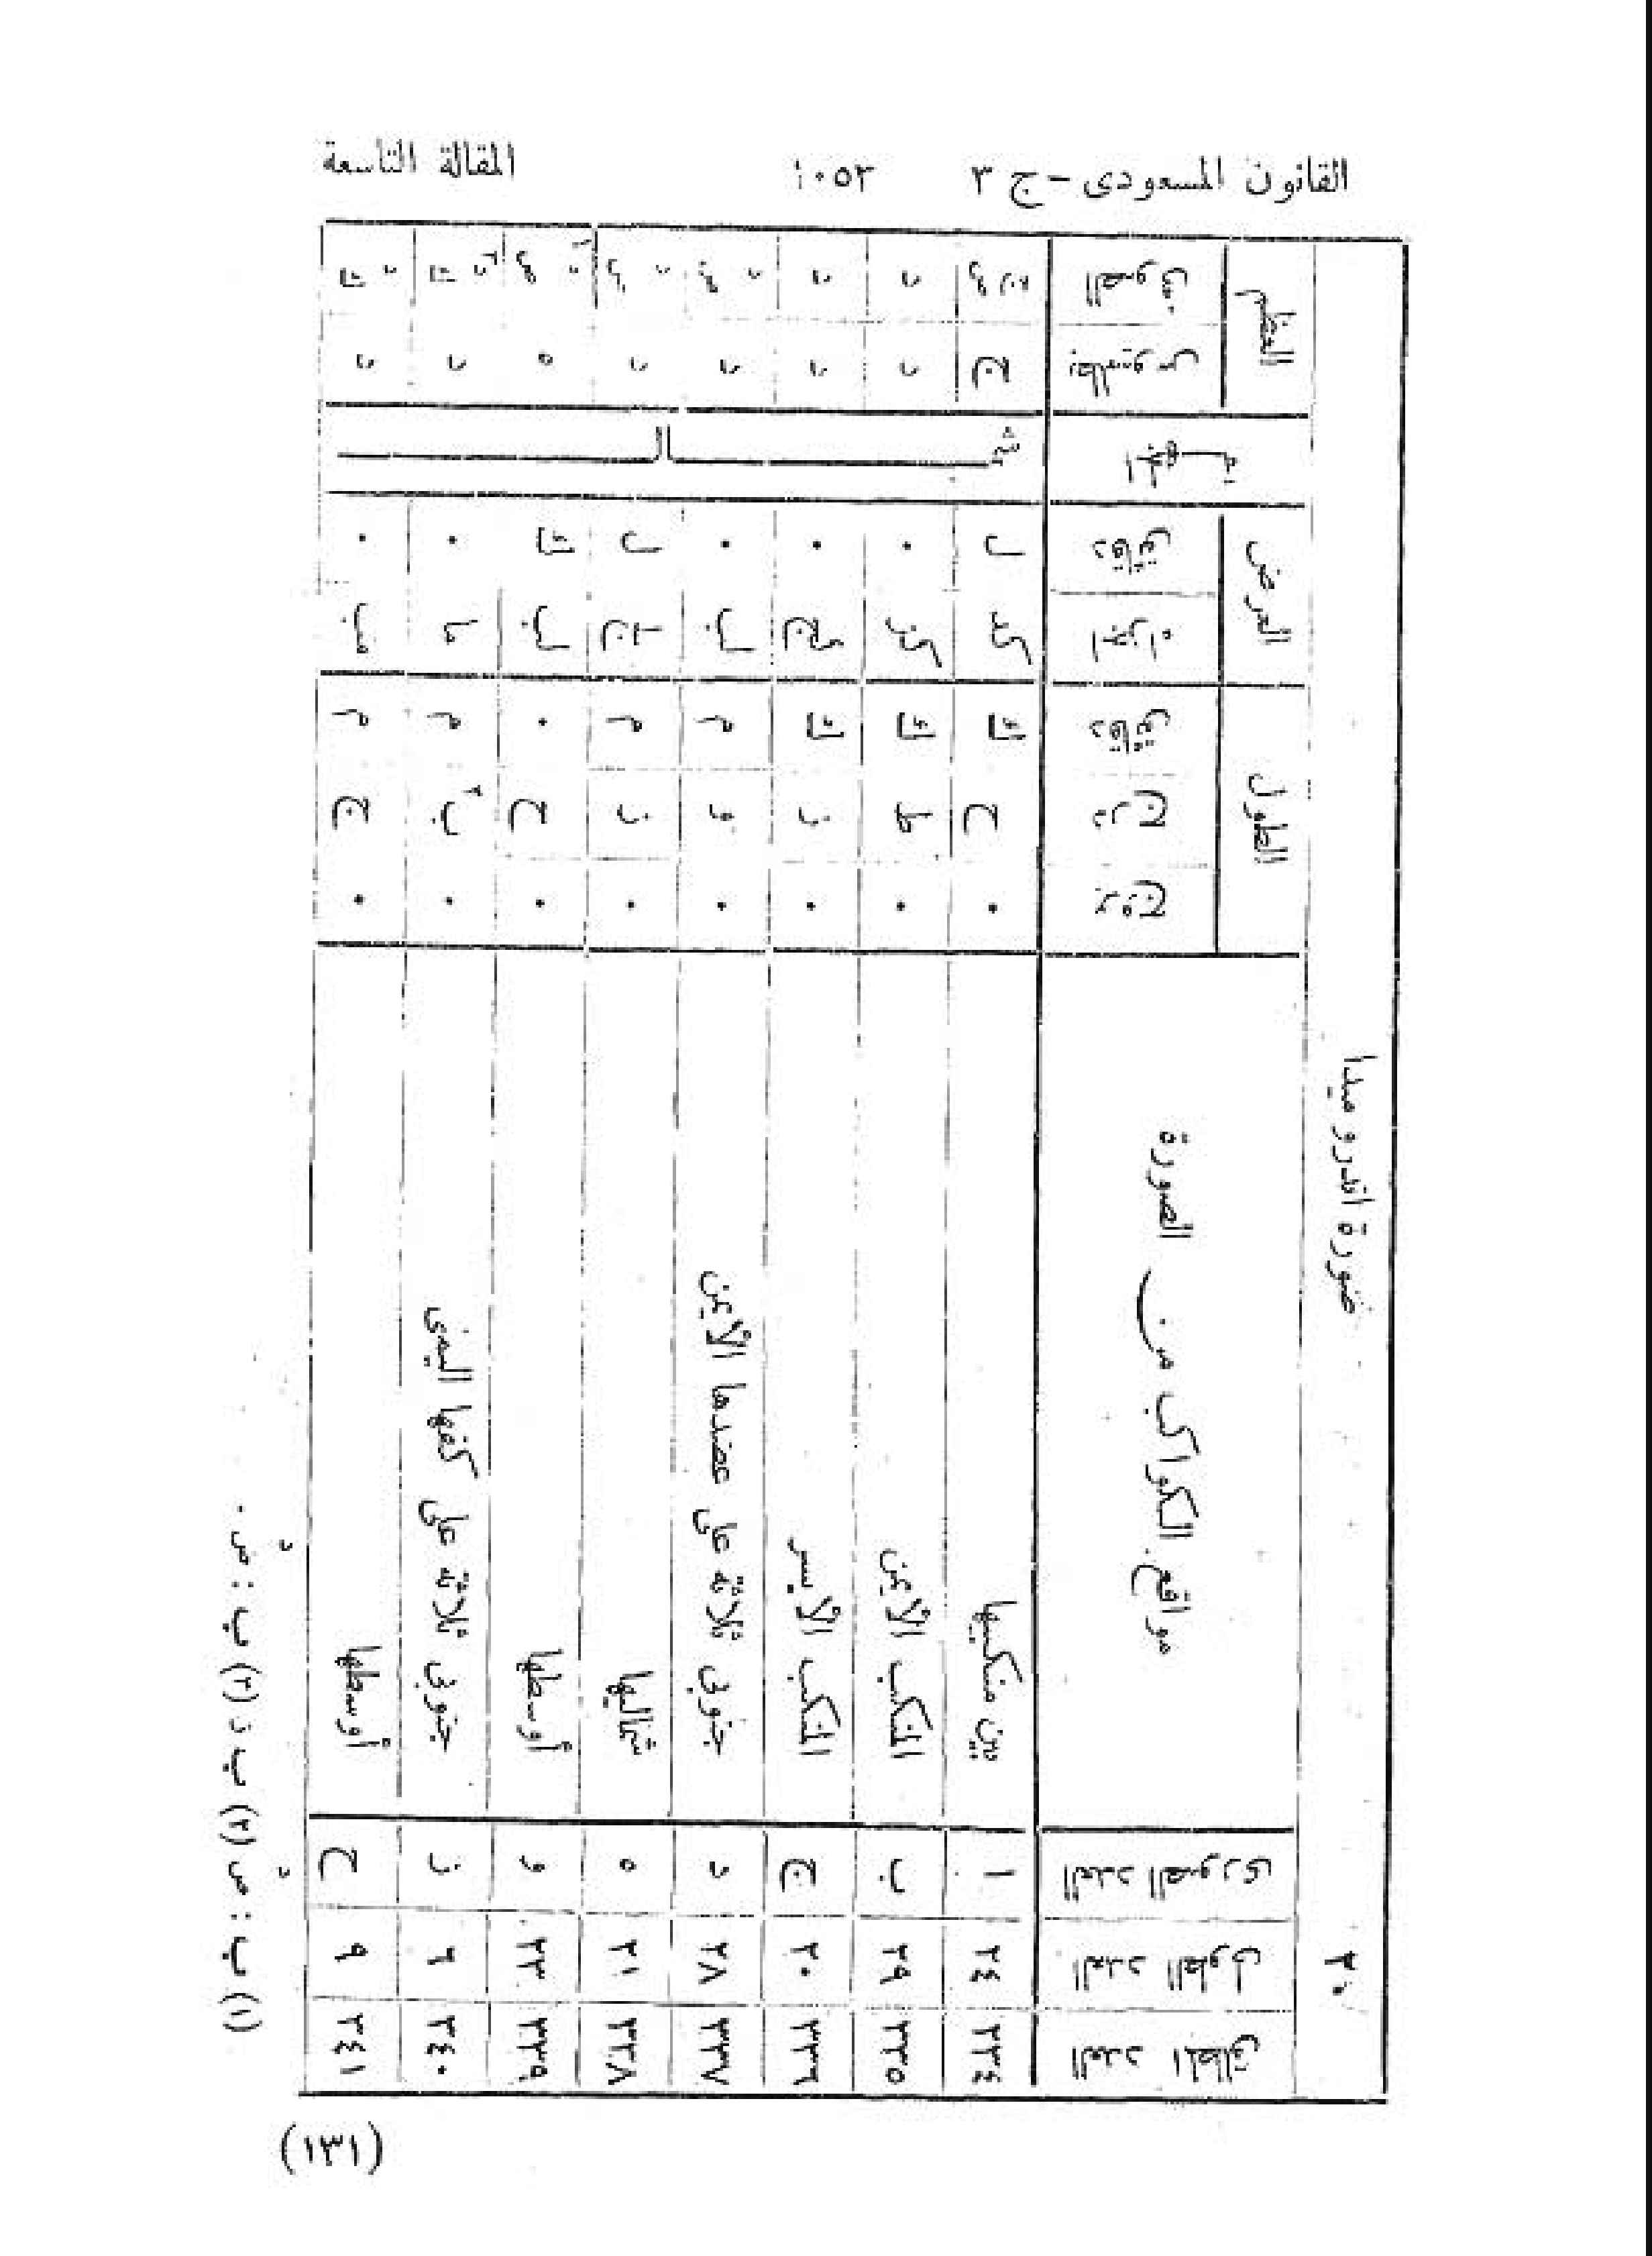 القانون المسعودى - ج ٣ ١٠٥٣ المقالة التاسعة
٢٠ صورة اندروميدا
العدد المطلق العدد الطولى العدد الصورى مواقع الكواكب من الصورة الطول العرض الجهة العظم
بروج درج دقائق اجزاء دقائق بطلميوس الصوفى
٣٣٤ ٢٤ ا بين منكبيها ٠ ح ك كد ل ج
٣٣٥ ٢٩ ب المنكب الأيمن ٠ ط ك كز ٠
٣٣٦ ٢٠ ج المنكب الأيسر ٠ ز ك كج ٠
٣٣٧ ٢٨ د جنوبى ثلاثة على عضدها الأيمن ٠ و م لب ٠
٣٣٨ ٢١ ه شماليها ٠ ز م لج ل
٣٣٩ ٢٣ و أوسطها ٠ ح ٠ لب ك ه
٣٤٠ ٦ ز جنوبى ثلاثة على كفها اليمنى ٠ ب م ما ٠
٣٤١ ٩ ح أوسطها ٠ ج م مب ٠
شمال
(١) ب : ص (٢) ب د (٣) ب : ص .
(١٣١)